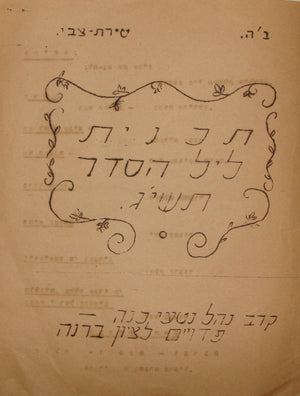 ב"ה. טירת-צבי.
תכנית
ליל הסדר
תשי"ג.
קרב נהל נטעי כנה –
פדויים לציון ברנה